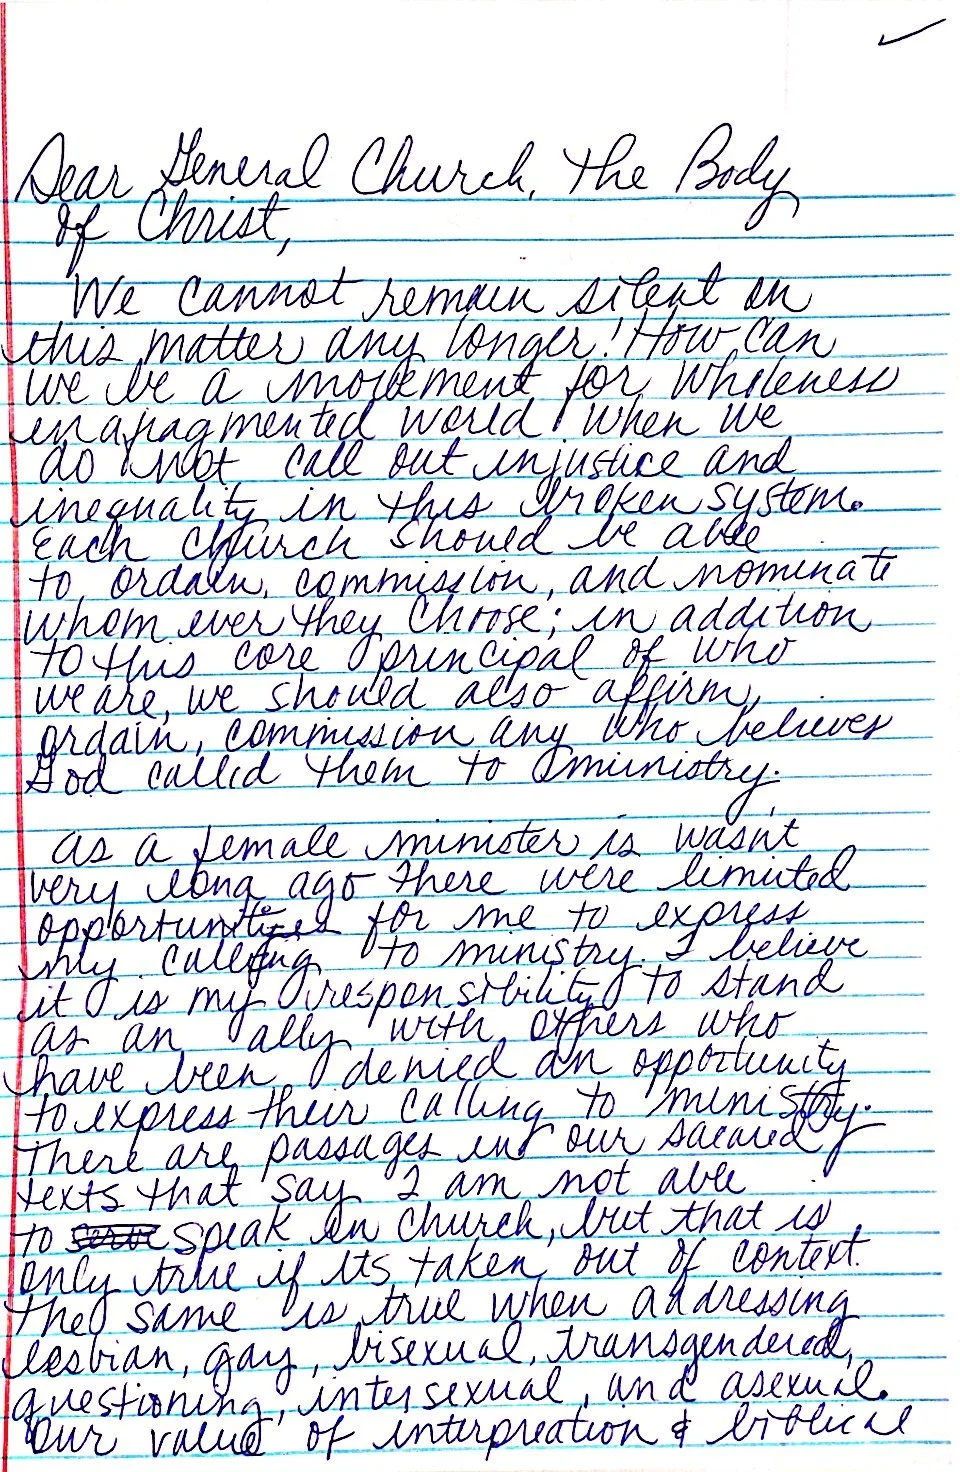 Dear General Church, the Body
of Christ,
We cannot remain silent on
this matter any longer! How can
we be a movement for wholeness
in a fragmented world when we
do not call out injustice and
inequality in this broken system.
Each church should be able
to ordain, commission, and nominate
whom ever they choose; in addition
to this core principal of who
we are, we should also affirm,
ordain, commission any who believes
God called them to ministry.
As a female minister is wasn't
very long ago there were limited
opportunities for me to express
my calling to ministry. I believe
it is my responsibility to stand
as an ally with others who
have been denied an opportunity
to express their calling to ministry.
There are passages in our sacared
texts that say I am not able
to speak in church, but that is
only true if its taken out of context.
The same is true when addressing
lesbian, gay, bisexual, transgendered,
questioning, intersexual, and asexual.
Our value of interpreation & biblical